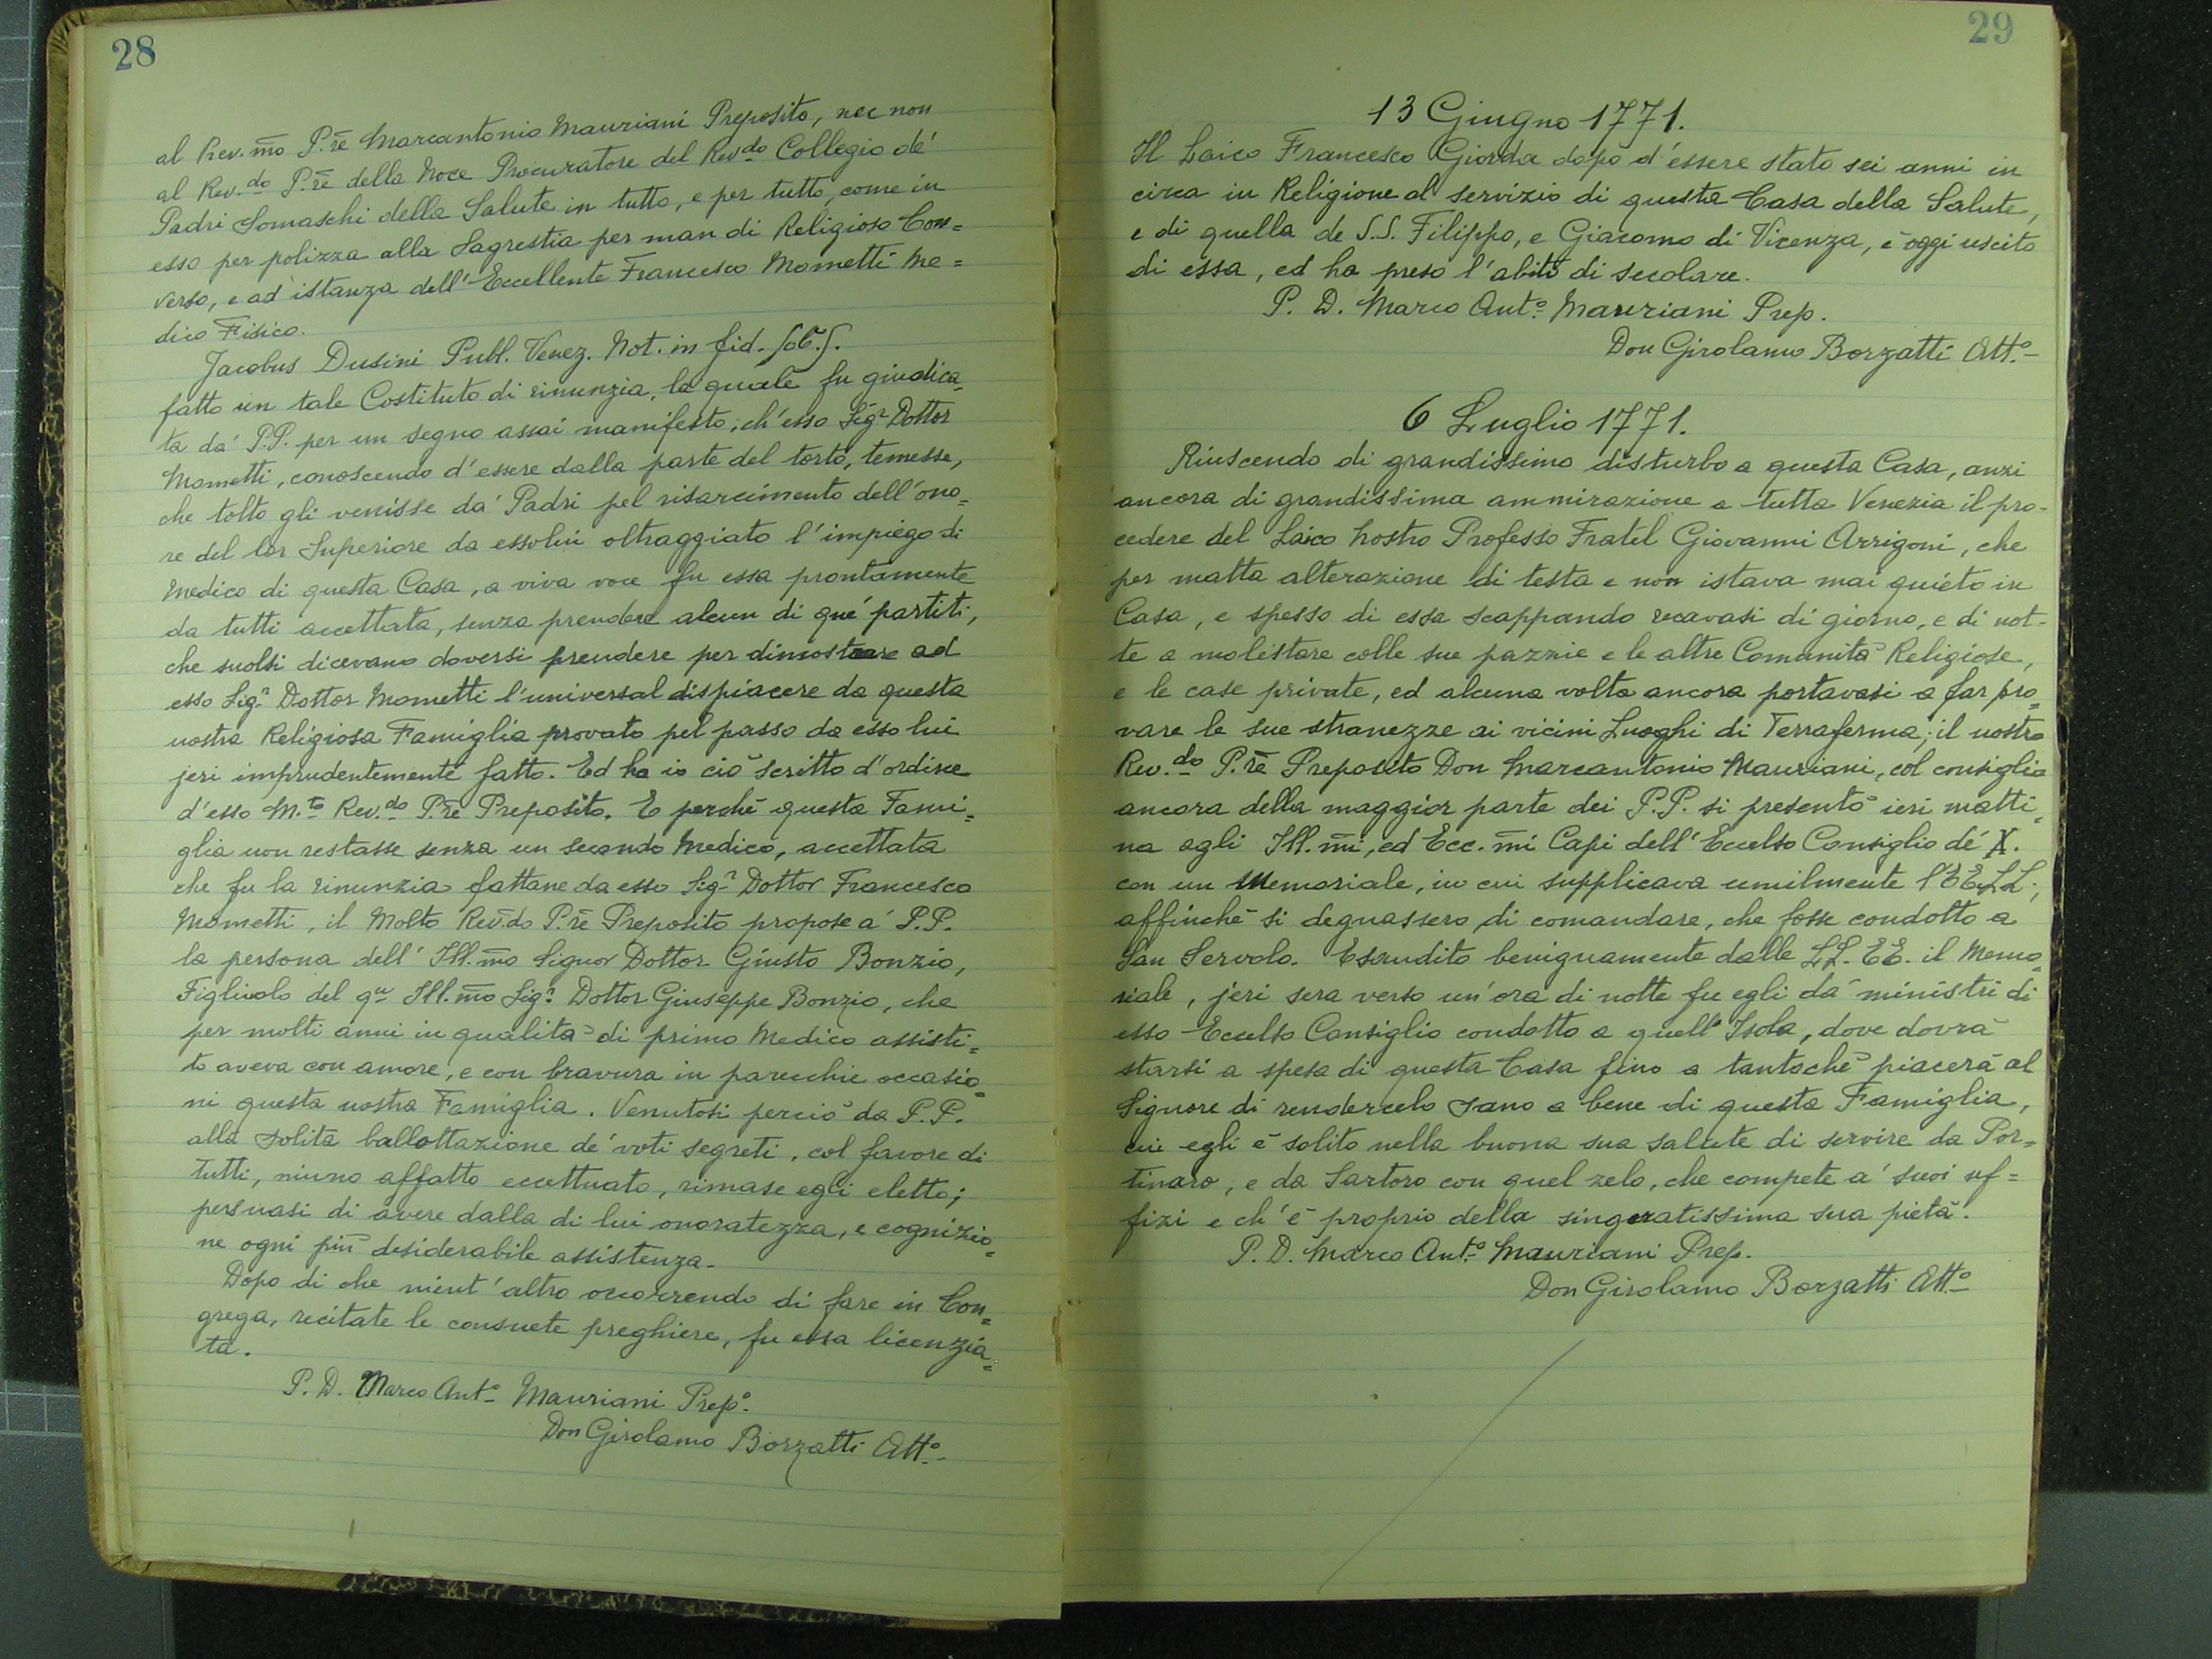 28
al Rev.mo P.re Marcantonio Mauriani Preposito, nec non
al Rev.do P.re della Noce Procuratore del Revdo Collegio de'
Padri Somaschi della Salute in tutto, e per tutto, come in
esso per polizza alla Sagrestia per man di Religioso Con=
verso, e ad istanza dell'Eccellente Francesco Mometti Me=
dico Fisico.
Jacobus Dusini Publ. Venez. Not. in fid.
fatto un tale Costituto di rinunzia, la quale fu giudica=
ta da' P.P. per un segno assai manifesto, ch'esso Sigr Dottor
Mometti, conoscendo d'essere dalla parte del torto, temesse,
che tolto gli venisse da' Padri pel risarcimento dell'ono=
re del lor Superiore da essolui oltraggiato l'impiego di
Medico di questa Casa, a viva voce fu essa prontamente
da tutti accettata, senza prendere alcun di que' partiti,
che suolsi dicevano doversi prendere per dimostrare ad
esso Sigr Dottor Mometti l'universal dispiacere da questa
nostra Religiosa Famiglia provato pel passo da esso lui
jeri imprudentemente fatto. Ed ho io ciò scritto d'ordine
d'esso M.to Rev.do P.re Preposito. E perchè questa Fami=
glia non restasse senza un secondo Medico, accettata
che fu la rinunzia fattane da esso Sigr Dottor Francesco
Mometti, il Molto Rev.do P.re Preposito propose a' P.P.
la persona dell'Ill.mo Signor Dottor Giusto Bonzio,
Figliuolo del qu Ill.mo Sigr Dottor Giuseppe Bonzio, che
per molti anni in qualità di primo Medico assisti=
to aveva con amore, e con bravura in parecchie occasio=
ni questa nostra Famiglia. Venutosi perciò da P.P.
alla solita ballottazione de' voti segreti, col favore di
tutti, niuno affatto eccettuato, rimase egli eletto;
persuasi di avere dalla di lui onoratezza, e cognizio=
ne ogni più desiderabile assistenza.
Dopo di che nient'altro occorrendo di fare in Con=
grega, recitate le consuete preghiere, fu essa licenzia=
ta.
P. D. Marco Anto Mauriani Prepo.
Don Girolamo Borzatti Atto
29
13 Giugno 1771.
Il Laico Francesco Giorda dopo d'essere stato sei anni in
circa in Religione al servizio di questa Casa della Salute,
e di quella de S.S. Filippo, e Giacomo di Vicenza, è oggi uscito
di essa, ed ha preso l'abito di secolare.
P. D. Marco Anto Mauriani Prep.
Don Girolamo Borzatti Atto
6 Luglio 1771.
Riuscendo di grandissimo disturbo a questa Casa, anzi
ancora di grandissima ammirazione a tutta Venezia il pro-
cedere del Laico nostro Professo Fratel Giovanni Arrigoni, che
per matta alterazione di testa e non istava mai quieto in
Casa, e spesso di essa scappando recavasi di giorno, e di not-
te a molestare colle sue pazzie e le altre Comunità Religiose,
e le case private, ed alcuna volta ancora portavasi a far pro=
vare le sue stranezze ai vicini Luoghi di Terraferma; il nostro
Rev.do P.re Preposito Don Marcantonio Mauriani, col consiglio
ancora della maggior parte dei P.P. si presentò ieri matti=
na agli Ill.mi, ed Ecc.mi Capi dell'Eccelso Consiglio de' X.
con un Memoriale, in cui supplicava umilmente l'EE.LL.,
affinchè si degnassero di comandare, che fosse condotto a
San Servolo. Esaudito benignamente dalle LL.EE. il Memo=
riale, jeri sera verso un'ora di notte fu egli da' ministri di
esso Eccelso Consiglio condotto a quell'Isola, dove dovrà
starsi a spesa di questa Casa fino a tantochè piacerà al
Signore di rendercelo sano a bene di questa Famiglia,
cui egli è solito nella buona sua salute di servire da Por=
tinaro, e da Sartoro con quel zelo, che compete a' suoi uf=
fizi e ch'è proprio della singeratissima sua pietà.
P. D. Marco Anto Mauriani Prep.
Don Girolamo Borzatti Atto